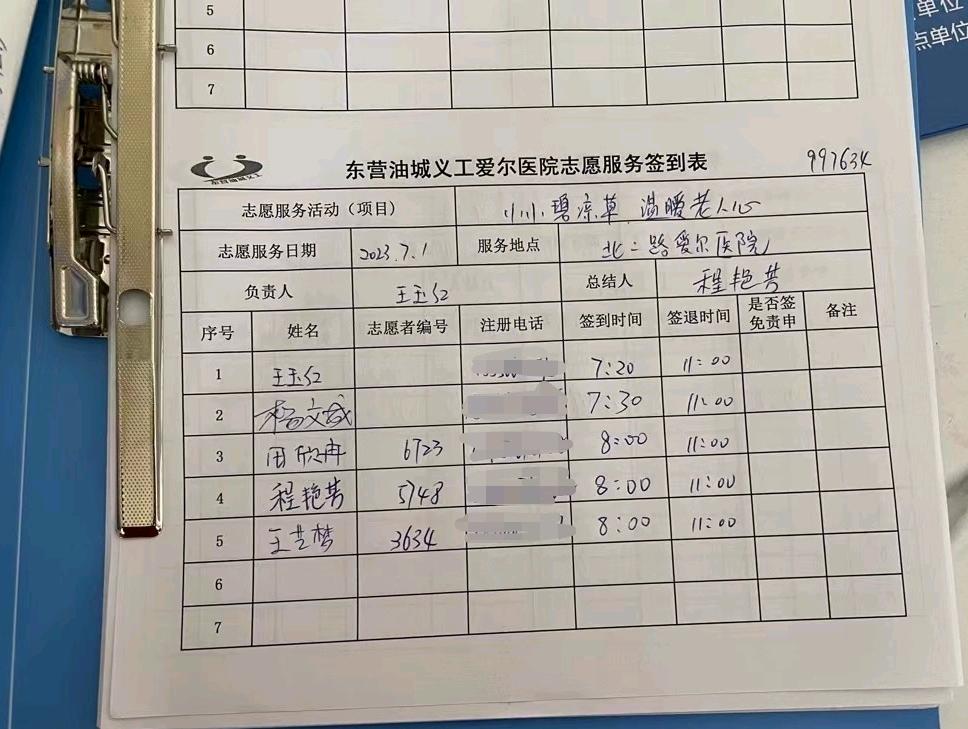 5
6
7
单位
点单位
东营油城义工
东营油城义工爱尔医院志愿服务签到表 997634
志愿服务活动（项目） 小小碧凉草 温暖老人心
志愿服务日期 2023.7.1 服务地点 北二路爱尔医院
负责人 王玉红 总结人 程艳芳
序号 姓名 志愿者编号 注册电话 签到时间 签退时间 是否签免责申 备注
1 王玉红 7:20 11:00
2 杨文斌 7:30 11:00
3 田欣冉 6723 8:00 11:00
4 程艳芳 5748 8:00 11:00
5 王艺梦 3634 8:00 11:00
6
7